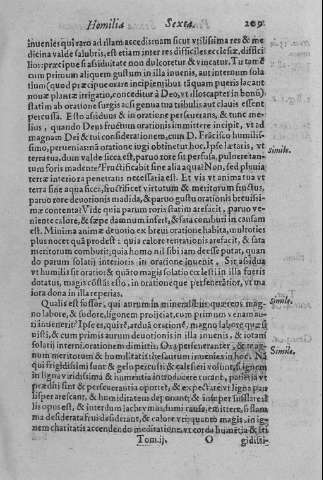 Homilia Sexta. 209
inuenies qui raro ad illam accedis nam sicut vtilissima res & me
dicina valde salubris, est etiam inter res difficiles ecclesiæ, diffici
lior: præcipue si assiduitate non dulcoretur & vincatur. Tu tamẽ
cum primum aliquem gustum in illa inuenis, aut internum sola
tium (quod præcipue orare incipientibus tãquam pueris lac aut
nouæ plantæ irrigatio, conceditur à Deo, vt illos captet in bonũ)
statim ab oratione surgis ac si genua tua tribulis aut clauis essent
percussa. Esto assiduus & in oratione perseuerans, & tunc me
lius, quando Deus fructum orationis immittere incipit, vt ad
magnam Dei & tui considerationem, cum D. Frãcisco humilis-
simo, peruenias nã oratione iugi obtinuit hoc. Ipse lætaris, vt
terra tua, dum valde sicca est, paruo rore sit perfusa, pulnere tan-
tum foris madente? Fructificabit sine alia aqua? Non, sed pluuia
terræ interiora penetratis necessaria est. Et vis vt anima tua vt
terra sine aqua sicca, fructificet virtutum & meritorum fructus,
paruo rore deuotionis madida, & paruo gustu orationis breuissi-
mæ contenta? Vide quia parum roris statim arefacit, paruo ve-
niente calore, & sæpe damnum infert, & sata comburi in causam
est. Minima animæ deuotio ex breui oratione habita, multoties
plus nocet quã prodest: quia calore tentationis arefacit, & sata
meritorum comburit; quia homo nil sibi iam deesse putat, quan
do parum solatij interioris in oratione inuenit. Sit assidua
vt humilis sit oratio: & quãto magis solatio cælesti in illa fueris
dotatus, magis cõstãs esto, in oratione que perseuerãtior, vt ma
iora dona in illa reperias.
Qualis est fossor, qui aurum in mineralibus quærens mag-
no labore, & sudore, ligonem proijciat, cum primum venam au-
ri inuenerit? Ipse es, qui
labore quæsi
uisti, & cum primis aurum deuotionis in illa inuenis, & iotam
solatij interni: orationem dimittis. Ora perseueranter, & mag-
num meritorum & humilitatis thesaurum inuenies in hoc. Nã
qui frigidissimi sunt & gelu percussi: & calefieri volunt, si ignem
in ligna viridissima & humentia introducere curent, patientia vt
præditi sint & perseuerantia oportet, & expectare vt ligna pau
lisper arescant, & humiditatem deponant; & insuper sufflare il
lis opus est, & interdum lachrymas, fumi causa, emittere, si flam
ma desiderata frui desiderant, & calore vti: quanto magis in ig-
nem charitatis accendendo meditatione, vt corda humentia & fri
Tom.ij. O gidissi-
Simile.
Simile.
Simile.